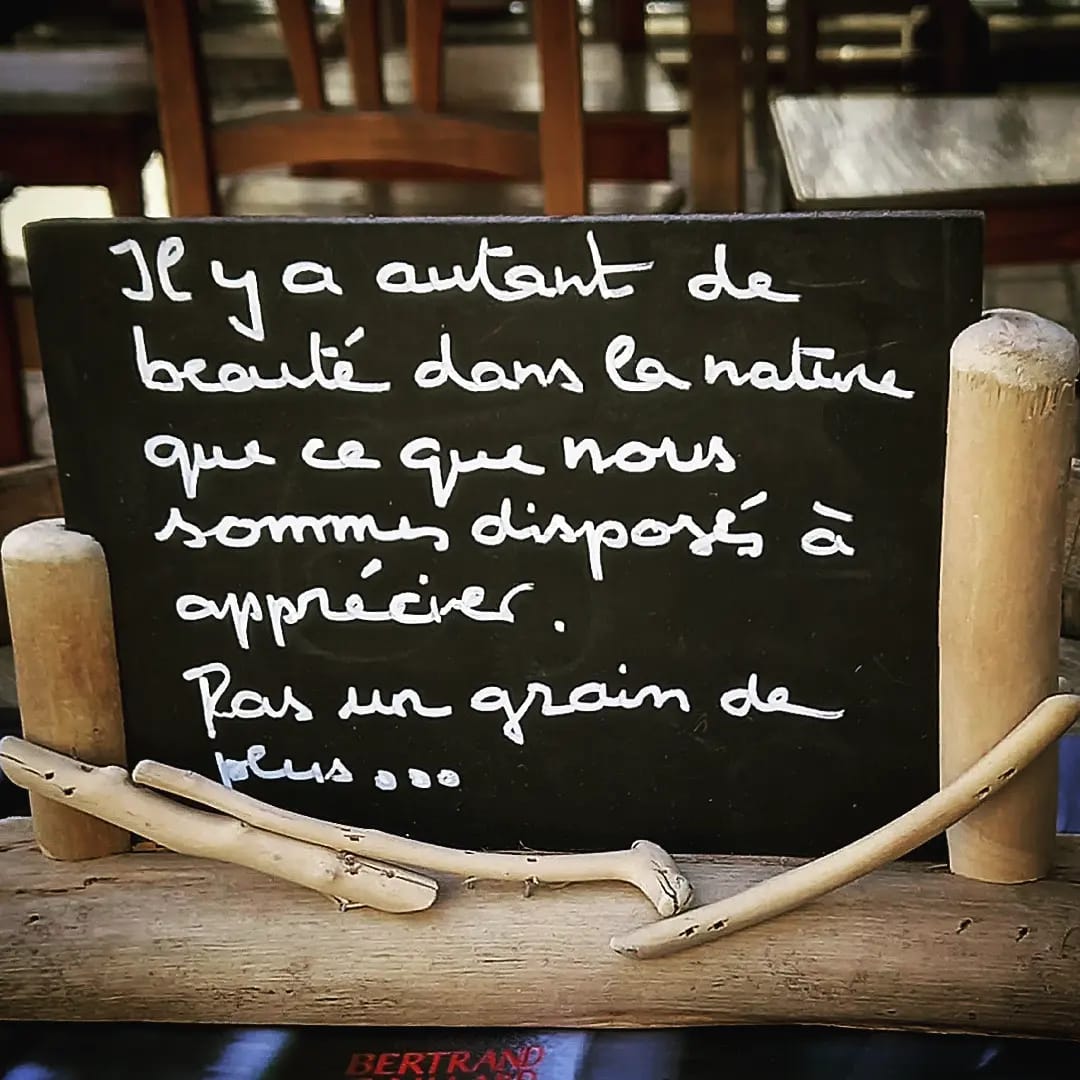 Il y a autant de
beauté dans la nature
que ce que nous
sommes disposés à
apprécier.
Pas un grain de
plus...
BERTRAND